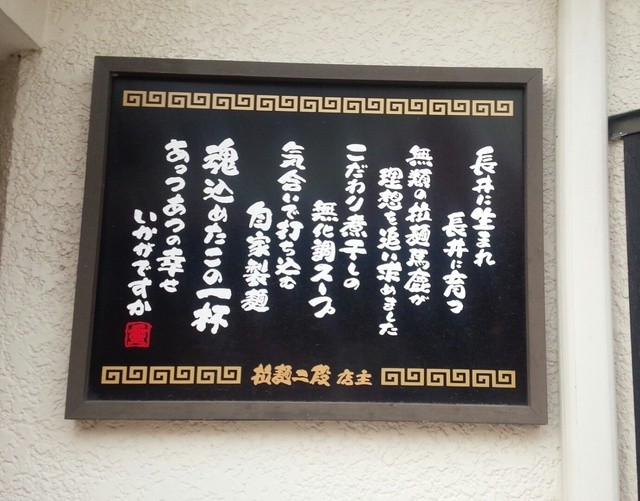 長井に生まれ
長井に育つ
無類の拉麺馬鹿が
理想を追い求めました
こだわり煮干しの
無化調スープ
気合いで打ち込む
自家製麺
魂込めたこの一杯
あっつあつの幸せ
いかがですか
拉麺二段 店主